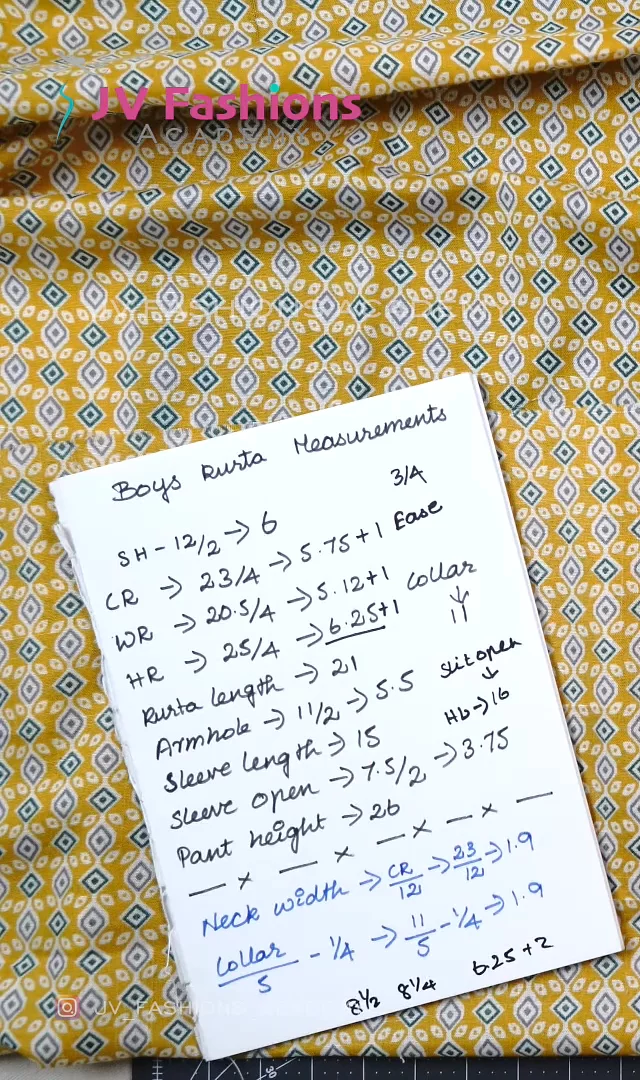 JV Fashions
ACADEMY
Boys Kurta Measurements
3/4
SH - 12/2 → 6
CR → 23/4 → 5.75 + 1 Ease
WR → 20.5/4 → 5.12+1 Collar
↓
11
HR → 25/4 → 6.25+1
Kurta length → 21
Armhole → 11/2 → 5.5
Slit open
↓
Ht → 16
Sleeve length → 15
Sleeve open → 7.5/2 → 3.75
Pant height → 26
— x — x — x — x —
Neck width → CR/12 → 23/12 → 1.9
Collar/5 - 1/4 → 11/5 - 1/4 → 1.9
8 1/2 8 1/4 6.25 + 2